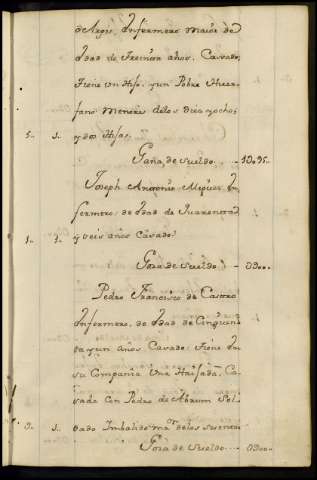 de Argis, Infermero Maior de
Edad de Treinta años, Casado,
Tiene un Hijo, y un Pobre Huer-
fano menores delos Diez yocho,
5.. 1.. y dos Hijas.
Gana de sueldo
Joseph Antonio Miguez In-
fermero, de Edad de Quarenta
1.. 1.. y seis años Casado.
Goza de sueldo
Pedro Francisco de Castro
Infermero, de Edad de Cinquen-
ta y un años Casado: Tiene En
su Compañia Una Ca-
sada Con Pedro de Sol-
1.. dado Imbalido delos
Goza de Sueldo